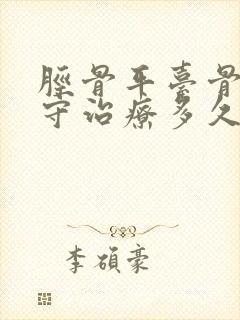 脛骨平臺骨
守治療多久
李碩豪